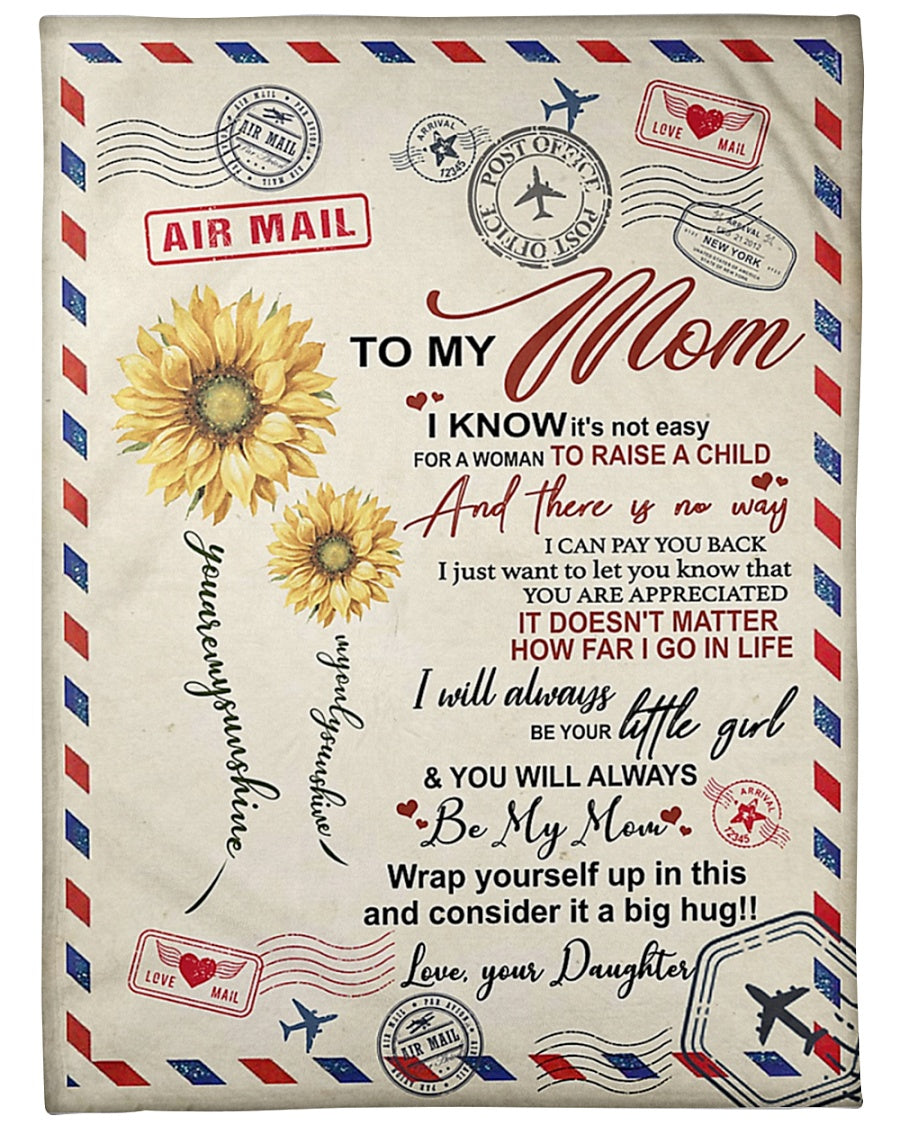 AIR MAIL • PAR AVION
AIR MAIL
Par Avion
AIR MAIL
ARRIVAL
12345
POST OFFICE
POST OFFICE
LOVE MAIL
AIR MAIL
ARRIVAL
21 2012
NEW YORK
UNITED STATES OF AMERICA
STATE OF NEW YORK
TO MY Mom
I KNOW it's not easy
FOR A WOMAN TO RAISE A CHILD
And there is no way
I CAN PAY YOU BACK
I just want to let you know that
YOU ARE APPRECIATED
IT DOESN'T MATTER
HOW FAR I GO IN LIFE
I will always
BE YOUR little girl
& YOU WILL ALWAYS
Be My Mom
Wrap yourself up in this
and consider it a big hug!!
Love, your Daughter
youaremysunshine
myonlyounshine
ARRIVAL
12345
LOVE MAIL
AIR MAIL • PAR AVION
AIR MAIL
PAR AVION